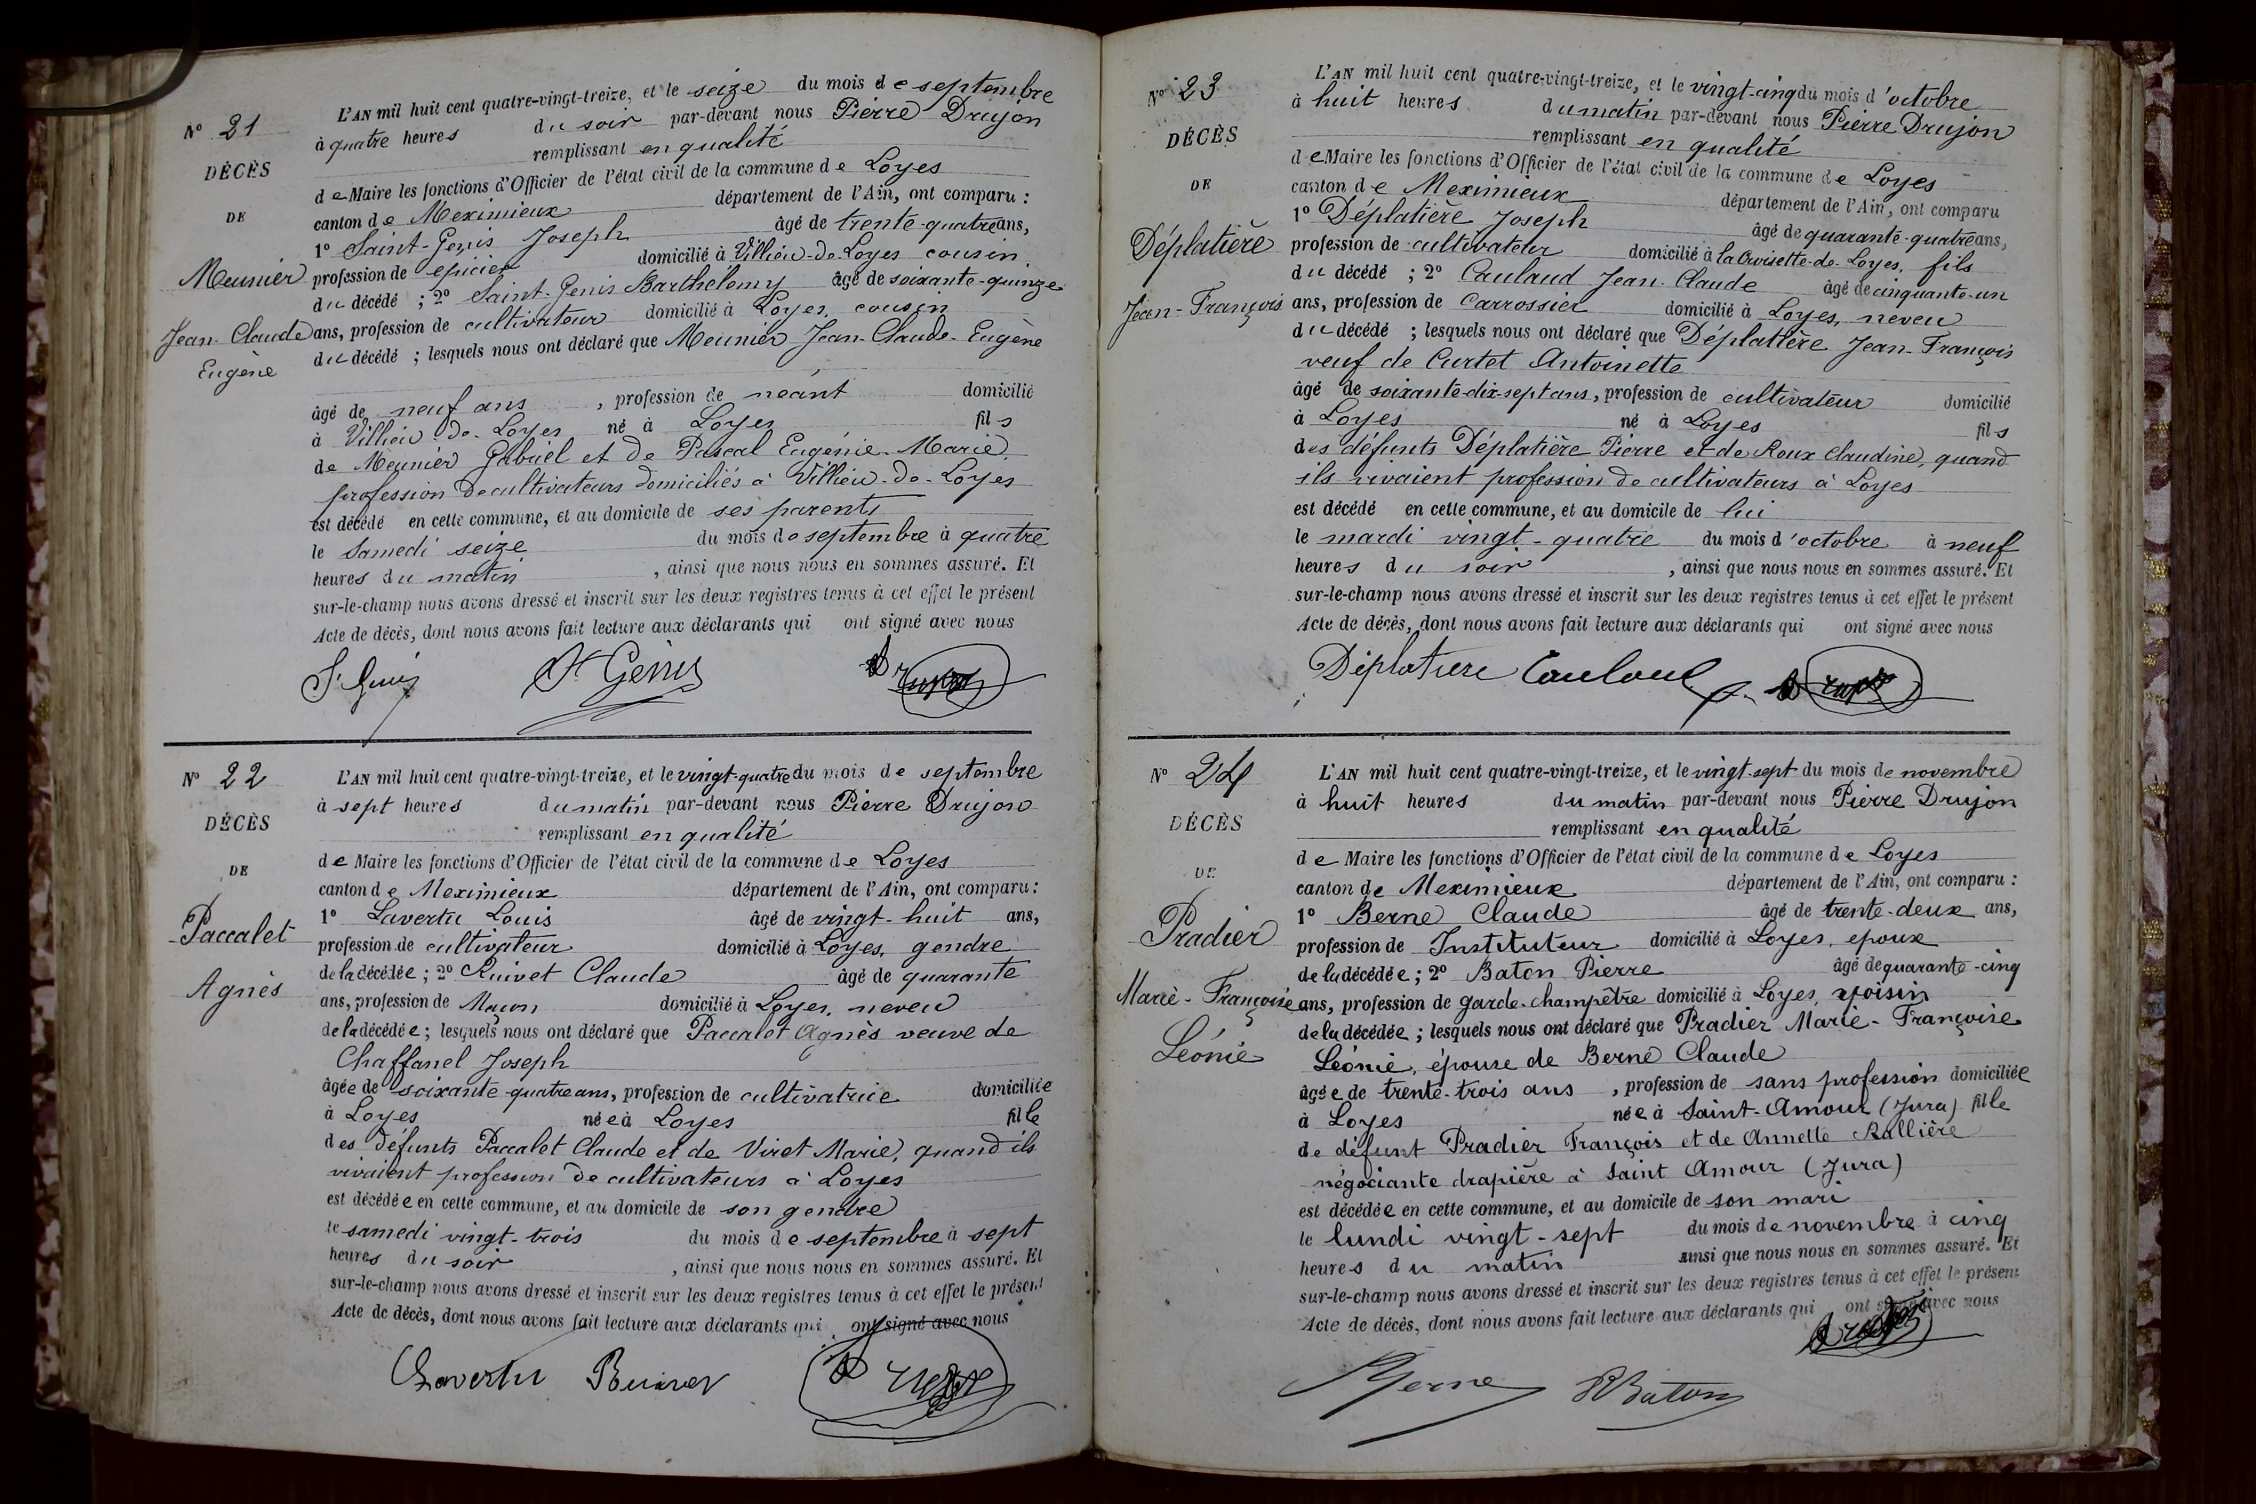 N° 21
DÉCÈS
DE
Meunier
Jean-Claude
Eugène
L'AN mil huit cent quatre-vingt-treize, et le seize du mois de septembre
à quatre heures du soir par-devant nous Pierre Drujon
remplissant en qualité
de Maire les fonctions d'Officier de l'état civil de la commune de Loyes
canton de Meximieux département de l'Ain, ont comparu :
1° Saint-Genis Joseph âgé de trente-quatre ans,
profession de épicier domicilié à Villieu-de-Loyes cousin
du décédé ; 2° Saint-Genis Barthélemy âgé de soixante-quinze
ans, profession de cultivateur domicilié à Loyes, cousin
du décédé ; lesquels nous ont déclaré que Meunier Jean-Claude-Eugène
âgé de neuf ans , profession de néant domicilié
à Villieu-de-Loyes né à Loyes fils
de Meunier Gabriel et de Pascal Eugénie-Marie,
profession de cultivateurs domiciliés à Villieu-de-Loyes
est décédé en cette commune, et au domicile de ses parents
le samedi seize du mois de septembre à quatre
heures du matin , ainsi que nous nous en sommes assuré. Et
sur-le-champ nous avons dressé et inscrit sur les deux registres tenus à cet effet le présent
Acte de décès, dont nous avons fait lecture aux déclarants qui ont signé avec nous
St Genis St Genis Drujon
N° 22
DÉCÈS
DE
Paccalet
Agnès
L'AN mil huit cent quatre-vingt-treize, et le vingt-quatre du mois de septembre
à sept heures du matin par-devant nous Pierre Drujon
remplissant en qualité
de Maire les fonctions d'Officier de l'état civil de la commune de Loyes
canton de Meximieux département de l'Ain, ont comparu :
1° Lavertu Louis âgé de vingt-huit ans,
profession de cultivateur domicilié à Loyes, gendre
de la décédée ; 2° Ruivet Claude âgé de quarante
ans, profession de Maçon domicilié à Loyes, neveu
de la décédée ; lesquels nous ont déclaré que Paccalet Agnès veuve de
Chaffanel Joseph
âgée de soixante-quatre ans, profession de cultivatrice domiciliée
à Loyes née à Loyes fille
des défunts Paccalet Claude et de Viret Marie, quand ils
vivaient profession de cultivateurs à Loyes
est décédée en cette commune, et au domicile de son gendre
le samedi vingt-trois du mois de septembre à sept
heures du soir , ainsi que nous nous en sommes assuré. Et
sur-le-champ nous avons dressé et inscrit sur les deux registres tenus à cet effet le présent
Acte de décès, dont nous avons fait lecture aux déclarants qui ont signé avec nous
Lavertu Ruivet Drujon
N° 23
DÉCÈS
DE
Déplatière
Jean-François
L'AN mil huit cent quatre-vingt-treize, et le vingt-cinq du mois d'octobre
à huit heures du matin par-devant nous Pierre Drujon
remplissant en qualité
de Maire les fonctions d'Officier de l'état civil de la commune de Loyes
canton de Meximieux département de l'Ain, ont comparu
1° Déplatière Joseph âgé de quarante-quatre ans,
profession de cultivateur domicilié à la Croisette-de-Loyes, fils
du décédé ; 2° Caulaud Jean-Claude âgé de cinquante-un
ans, profession de Carrossier domicilié à Loyes, neveu
du décédé ; lesquels nous ont déclaré que Déplatière Jean-François
veuf de Curtet Antoinette
âgé de soixante-dix-sept ans, profession de cultivateur domicilié
à Loyes né à Loyes fils
des défunts Déplatière Pierre et de Roux Claudine, quand
ils vivaient profession de cultivateurs à Loyes
est décédé en cette commune, et au domicile de lui
le mardi vingt-quatre du mois d'octobre à neuf
heures du soir , ainsi que nous nous en sommes assuré. Et
sur-le-champ nous avons dressé et inscrit sur les deux registres tenus à cet effet le présent
Acte de décès, dont nous avons fait lecture aux déclarants qui ont signé avec nous
Déplatiere Caulaud Drujon
N° 24
DÉCÈS
DE
Pradier
Marie-Françoise
Léonie
L'AN mil huit cent quatre-vingt-treize, et le vingt-sept du mois de novembre
à huit heures du matin par-devant nous Pierre Drujon
remplissant en qualité
de Maire les fonctions d'Officier de l'état civil de la commune de Loyes
canton de Meximieux département de l'Ain, ont comparu :
1° Berne Claude âgé de trente-deux ans,
profession de Instituteur domicilié à Loyes, époux
de la décédée ; 2° Baton Pierre âgé de quarante-cinq
ans, profession de garde-champêtre domicilié à Loyes, voisin
de la décédée ; lesquels nous ont déclaré que Pradier Marie-Françoise
Léonie, épouse de Berne Claude
âgée de trente-trois ans , profession de sans profession domiciliée
à Loyes née à Saint-Amour (Jura) fille
de défunt Pradier François et de Annette Rallière
négociante drapière à Saint Amour (Jura)
est décédée en cette commune, et au domicile de son mari
le lundi vingt-sept du mois de novembre à cinq
heures du matin ainsi que nous nous en sommes assuré. Et
sur-le-champ nous avons dressé et inscrit sur les deux registres tenus à cet effet le présent
Acte de décès, dont nous avons fait lecture aux déclarants qui ont signé avec nous
Drujon
Berne Baton